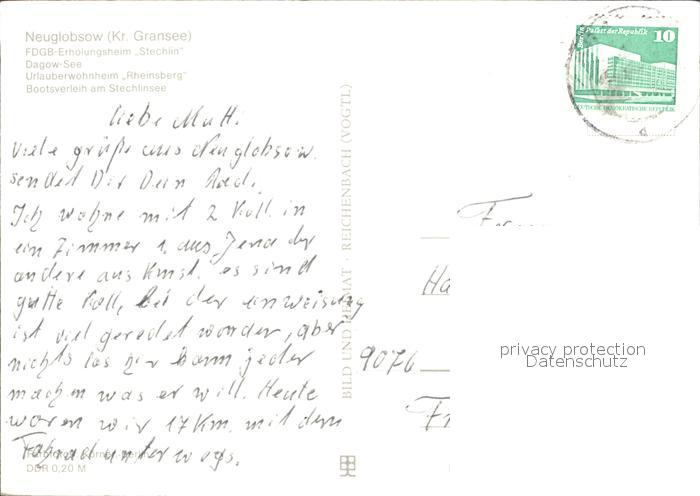 Neuglobsow (Kr. Gransee)
FDGB-Erholungsheim „Stechlin"
Dagow-See
Urlauberwohnheim „Rheinsberg"
Bootsverleih am Stechlinsee
Berlin Palast der Republik
10
DEUTSCHE DEMOKRATISCHE REPUBLIK
liebe Mutti
Viele grüße aus Neuglobsow
sendet Dir Dein
Ich wohne mit 2 Koll. in
ein Zimmer 1. aus Jena der
andere aus es sind
gutte Koll, bei der einweisung
ist viel geredet wonder, aber
nichts los hir kann jeder
machen was er will. Heute
waren wir 17 Km. mit dem
Fahrad unter wegs.
DDR 0,20 M
BILD UND HEIMAT · REICHENBACH (VOGTL)
Ha
9076
Fr
privacy protection
Datenschutz